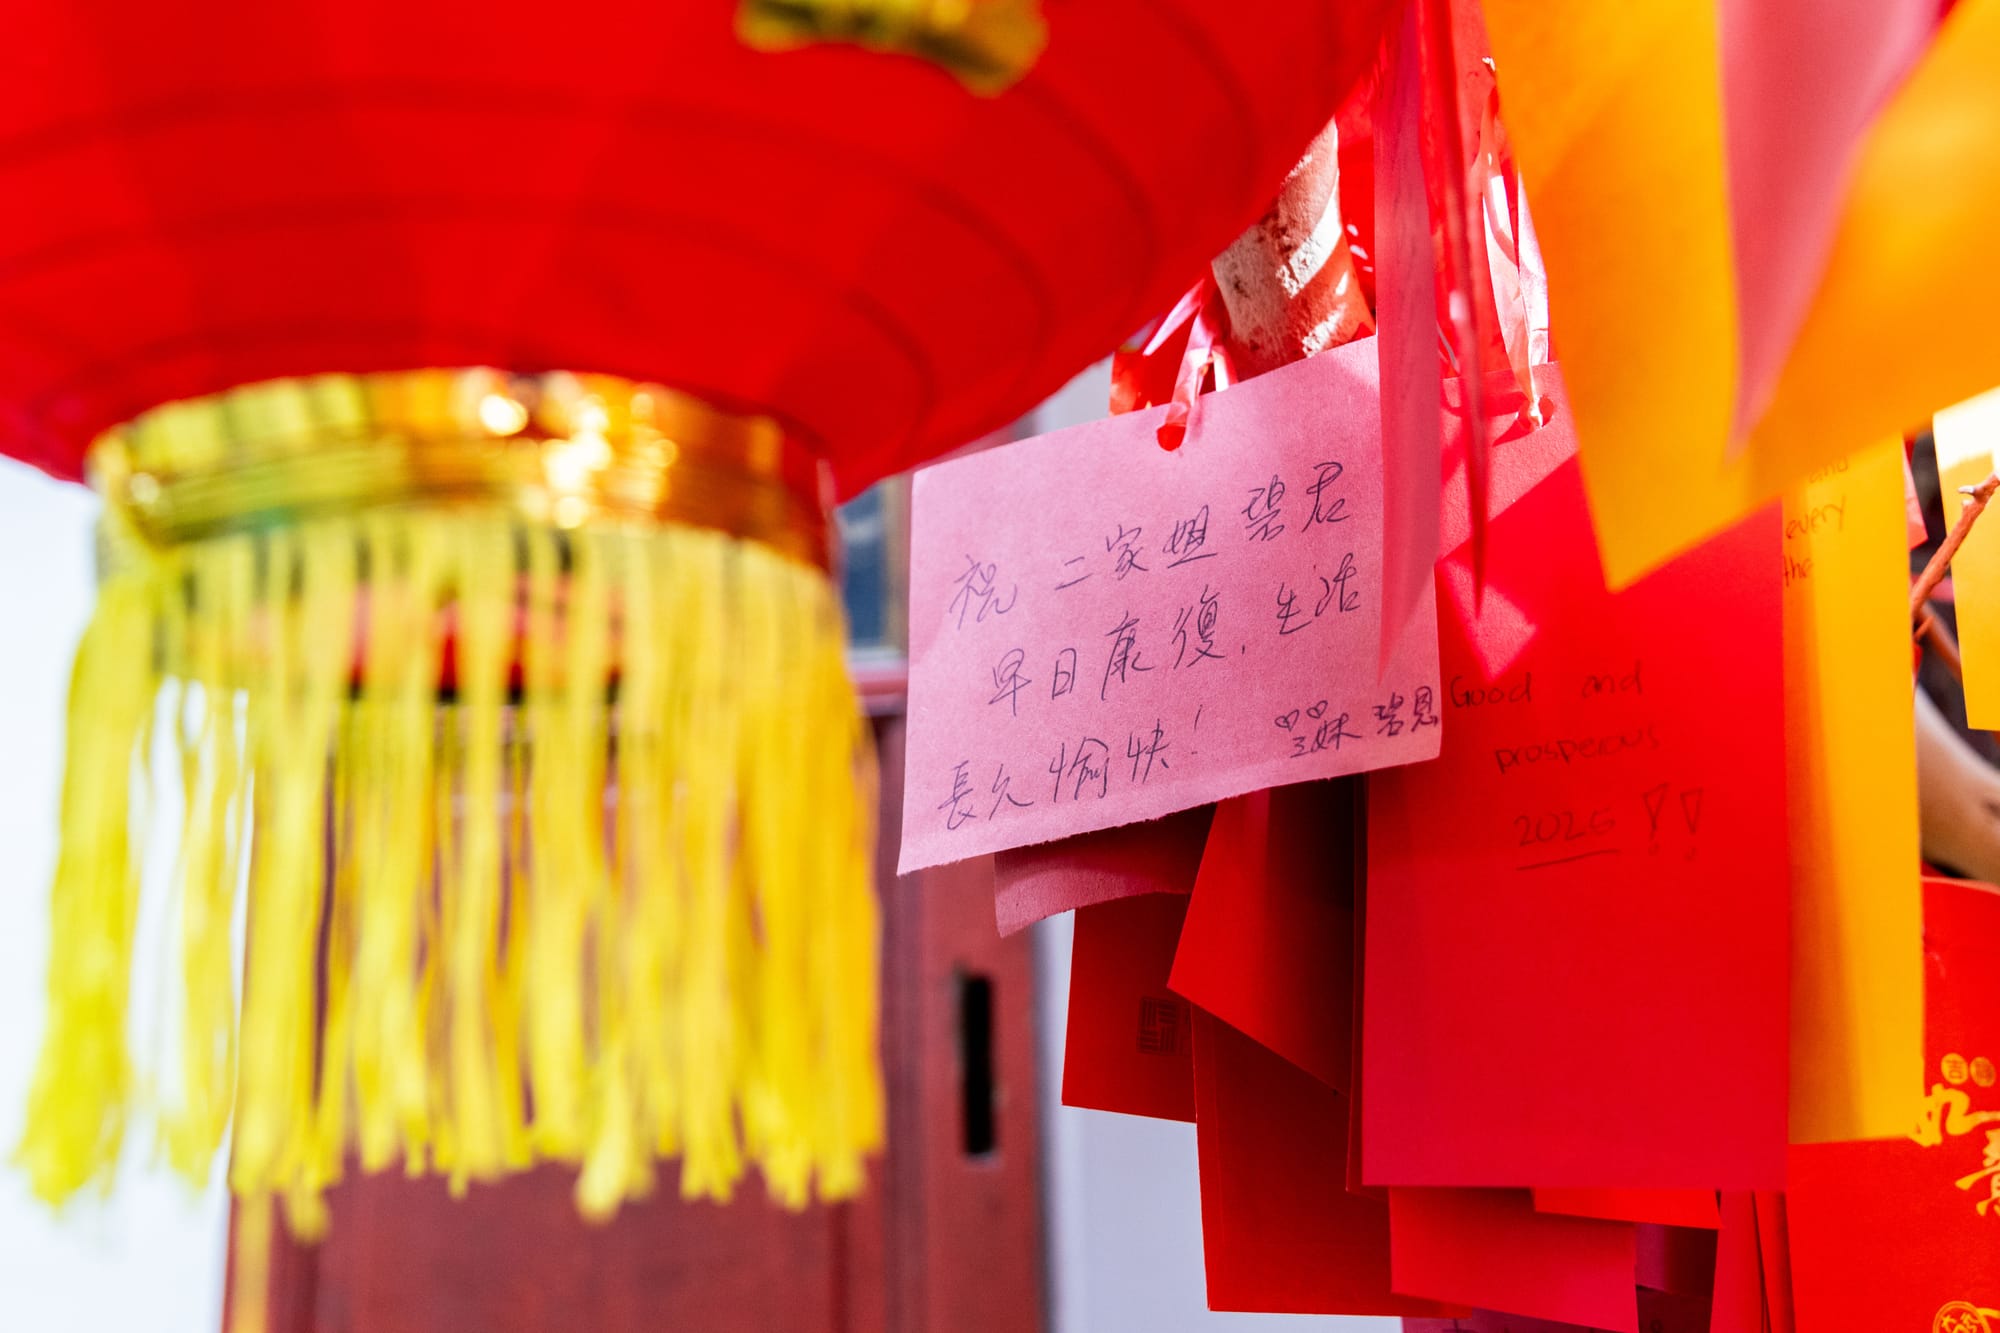 祝 二家姐 碧君
早日康復, 生活
長久愉快!
三妹 碧恩
Good and
prosperous
2026 !!
and
every
the
吉祥
如意